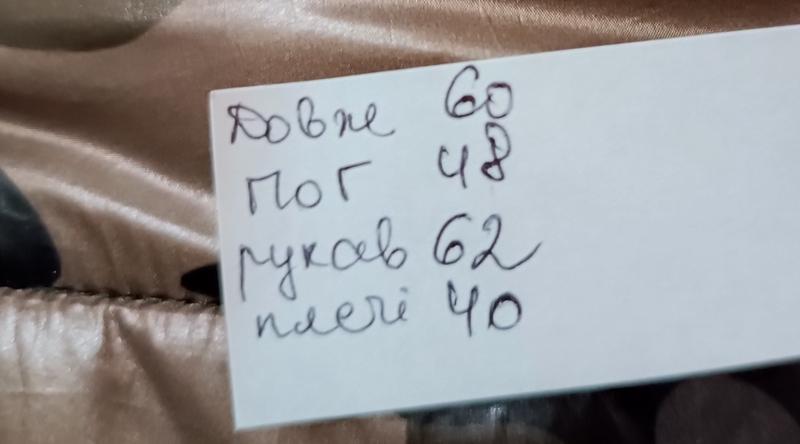 Довж 60
ПОГ 48
рукав 62
плечі 40